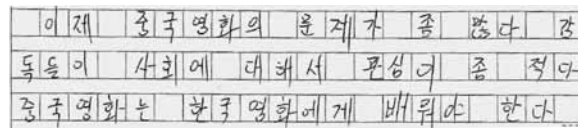 이제 중국영화의 문제가 좀 많다. 감
독들이 사회에 대해서 관심이 좀 적다
중국영화는 한국영화에게 배워야 한다